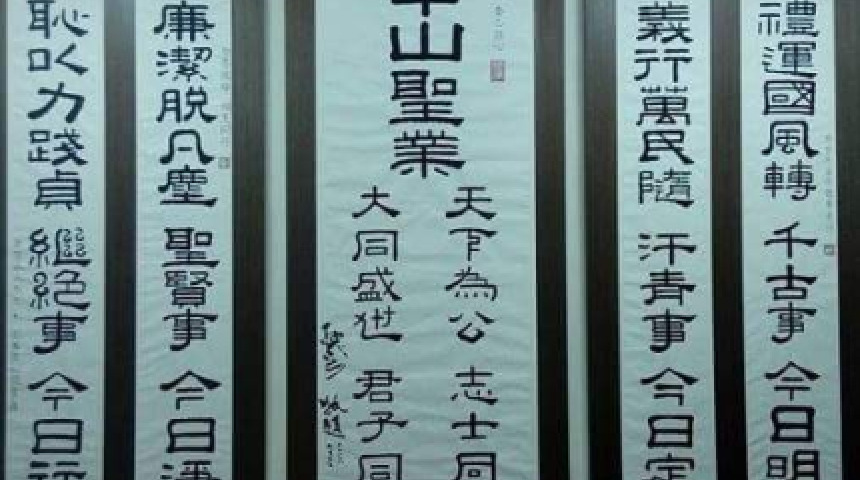 禮運國風轉 千古事 今日明
義行萬民隨 汗青事 今日定
山聖業
天下為公 志士同
大同盛世 君子同
廉潔脫凡塵 聖賢事 今日
恥以力踐貞 繼絕事 今日